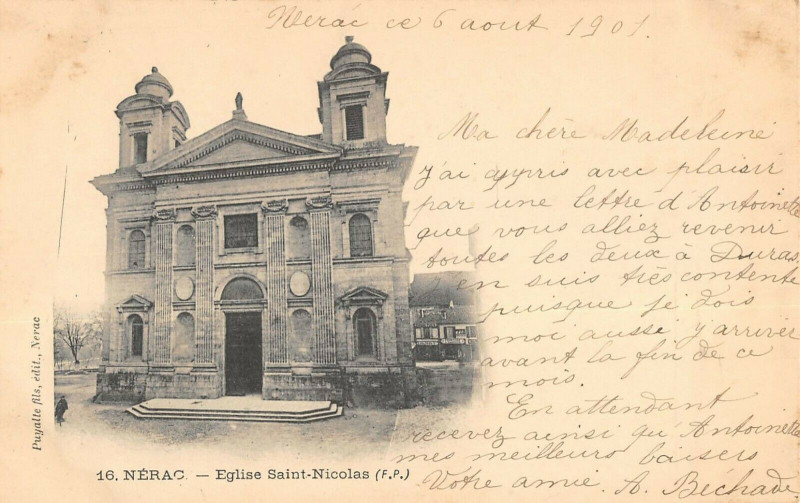 Nérac ce 6 aout 1901.
Ma chère Madeleine
J'ai appris avec plaisir
par une lettre d'Antoinette
que vous alliez revenir
toutes les deux à Duras,
j'en suis très contente
puisque je dois
moi aussi y arriver
avant la fin de ce
mois.
En attendant
recevez ainsi qu'Antoinette
mes meilleurs baisers
Votre amie A. Béchade
Puyalte fils, édit., Nerac
16. NÉRAC. — Eglise Saint-Nicolas (F.P.)